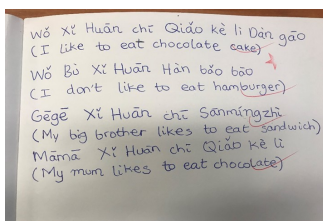 Wǒ Xǐ Huān chī Qiǎo kè li Dàn gāo
(I like to eat chocolate cake)
Wǒ Bù Xǐ Huān Hàn bǎo bāo
(I don't like to eat hamburger)
Gēgē Xǐ Huān chī Sānmíngzhì
(My big brother likes to eat sandwich)
Māmā Xǐ Huān chī Qiǎo kè lì
(My mum likes to eat chocolate)